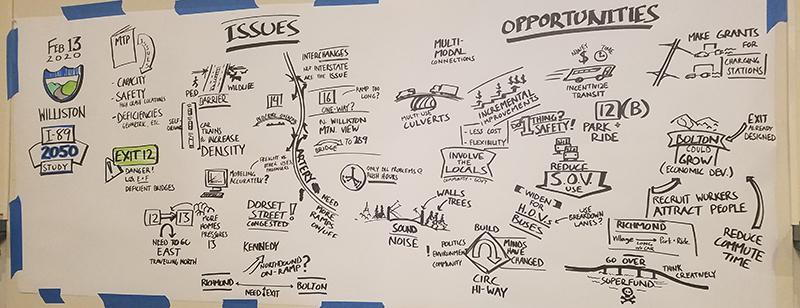 FEB 13
2020
WILLISTON
I-89
2050
STUDY
MTP
- CAPACITY
- SAFETY
HIGH CRASH LOCATIONS
- DEFICIENCIES
GEOMETRIC, ETC.
EXIT 12
DANGER!
LOS E+F
DEFICIENT BRIDGES
12
13
NEED TO GO
EAST
TRAVELING NORTH
MORE
HOMES
PRESSURES
13
ISSUES
PED
WILDLIFE
BARRIER
SELF-DRIVING
CAR
TRAINS
INCREASE
DENSITY
MODELING
ACCURATELY?
FREIGHT VS OTHER USES
DORSET
STREET
CONGESTED!
KENNEDY
NORTHBOUND
ON-RAMP?
RICHMOND
BOLTON
NEED EXIT
14
ARTERY
INTERCHANGES
NOT INTERSTATE
ARE THE ISSUE
16
RAMP TOO
LONG?
ONE-WAY?
N. WILLISTON
MTN. VIEW
BRIDGE
TO 289
ONLY BIG PROBLEMS @
RUSH HOURS
NEED
MORE
RAMPS
ON/OFF
OPPORTUNITIES
MULTI-
MODAL
CONNECTIONS
MULTI USE
CULVERTS
INCREMENTAL
IMPROVEMENTS
- LESS COST
- FLEXIBILITY
INVOLVE
THE
LOCALS
COMMUNITY + GOV'T
WALLS
TREES
SOUND
NOISE
BUILD
! POLITICS
ENVIRONMENT
COMMUNITY
MINDS
HAVE
CHANGED
CIRC
HI-WAY
MONEY
TIME
INCENTIVIZE
TRANSIT
1ST THING?
SAFETY!
12(B)
PARK +
RIDE
REDUCE
S.O.V.
USE
WIDEN
FOR
H.O.V.s
BUSES
USE
BREAKDOWN
LANES?
MAKE GRANTS
FOR
CHARGING
STATIONS
BOLTON
COULD
GROW
(ECONOMIC DEV.)
EXIT
ALREADY
DESIGNED
RECRUIT WORKERS
ATTRACT PEOPLE
REDUCE
COMMUTE
TIME
RICHMOND
Village
Park + Ride
GO OVER
SUPERFUND
THINK
CREATIVELY